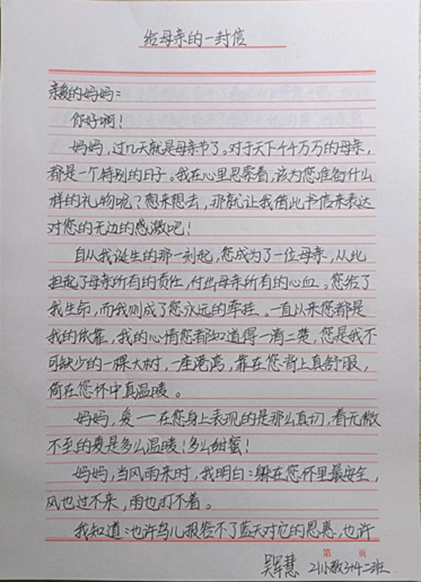 给母亲的一封信
亲爱的妈妈：
你好啊！
妈妈，过几天就是母亲节了。对于天下千千万万的母亲，
都是一个特别的日子。我在心里思索着，该为您准备什么
样的礼物呢？想来想去，那就让我借此书信来表达
对您的无边的感激吧！
自从我诞生的那一刻起，您成为了一位母亲，从此
担起了母亲所有的责任，付出母亲所有的心血。您给了
我生命，而我则成了您永远的牵挂。一直以来您都是
我的依靠，我的心情您都知道得一清二楚，您是我不
可缺少的一棵大树，一座港湾，靠在您背上真舒服，
倚在您怀中真温暖。
妈妈，爱一在您身上表现的是那么真切，看无微
不至的爱是多么温暖！多么甜蜜！
妈妈，当风雨来时，我明白：躲在您怀里最安全，
风也过不来，雨也打不着。
我知道：也许鸟儿报答不了蓝天对它的恩惠，也许
第 页
慧 班